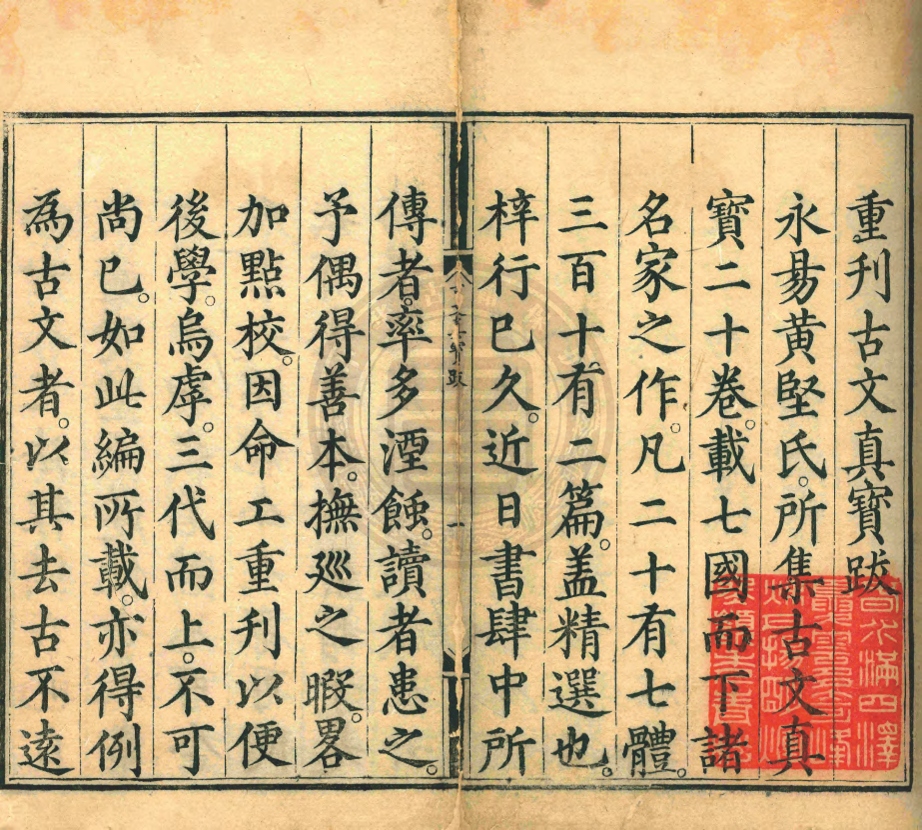 重刊古文真寶跋
永昜黄堅氏。所集古文真
寶二十卷。載七國而下諸
名家之作。凡二十有七體。
三百十有二篇。盖精選也。
梓行已久。近日書肆中所
一
傳者。率多湮蝕。讀者患之。
予偶得善本。撫廵之暇。畧
加點校。因命工重刊以便
後學。烏虖。三代而上。不可
尚已。如此編所載。亦得例
為古文者。以其去古不遠
春水滿四澤
夏雲多奇峰